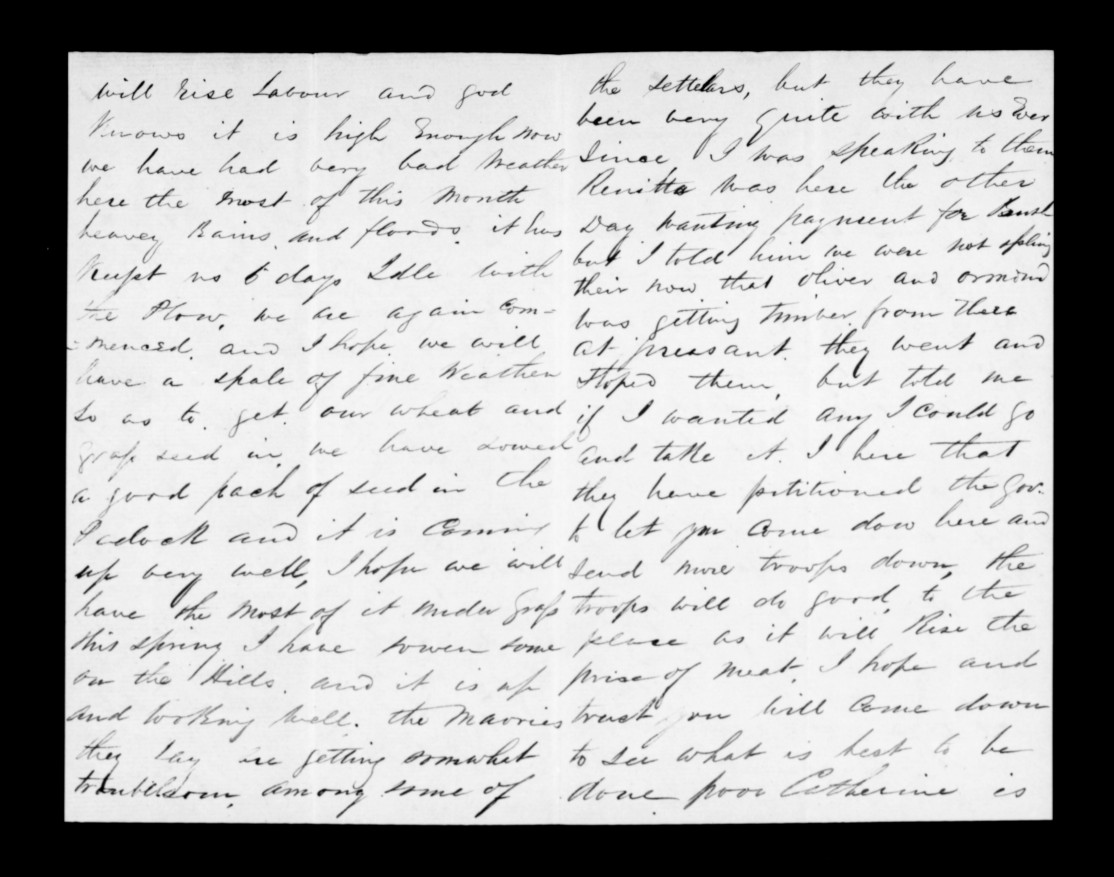 will rise Labour and god
Knows it is high Enough now
we have had very bad Weather
here the most of this Month
heavey Rains and floods. it has
Keept us 6 days Idle with
the Plow, we are again Com-
-menced. and I hope we will
have a spale of fine Weather
so as to get our wheat and
grass seed in, we have sowed
a good pach of seed in the
Padock and it is Coming
up very well, I hope we will
have the most of it under Grass
this spring I have sowen some
on the Hills. and it is up
and looking well. the Maories
they say are getting somwhet
troublesom among some of
the settelars, but they have
been very quite with us Ever
Since I was speaking to them
Renitta was here the other
Day wanting payment for Bush
but I told him we were not
their now that Oliver and ormond
was getting timber from there
at preasant. they went and
stoped them, but told me
if I wanted any I could go
and take it. I here that
they have pititioned the Gov.
to let you Come dow here and
send more troops down, the
troops will do good to the
place as it will Rise the
prise of meat. I hope and
trust you will Come down
to see what is best to be
done poor Catherine is